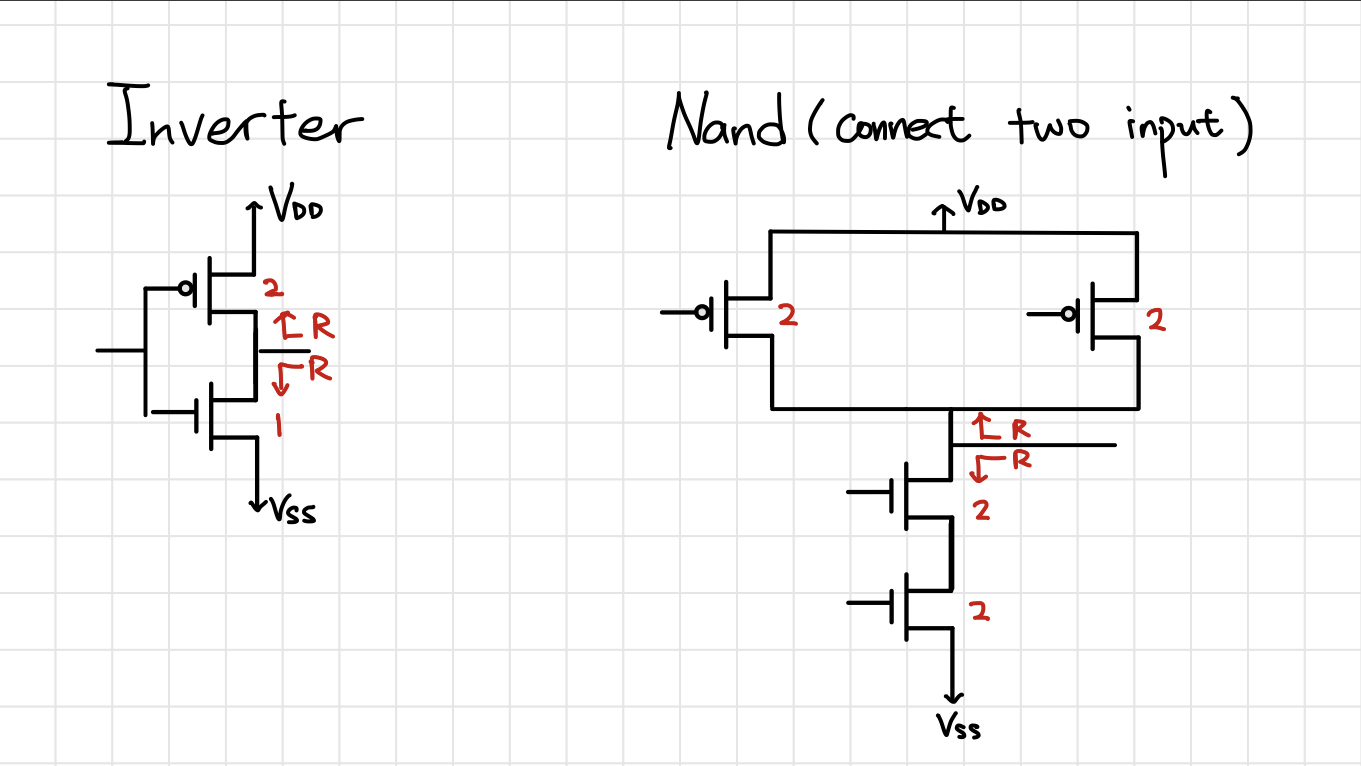 Inverter
VDD
2
R
R
1
VSS
Nand (connect two input)
VDD
2
2
R
R
2
2
VSS